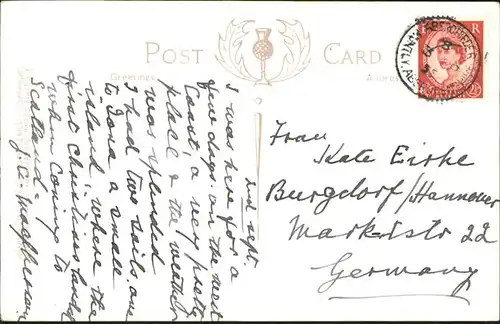 POST CARD
Greetings
Address
2nd Sept.
I was here for a
few days on the west
Coast a very pretty
place & the weather
was splendid
I had two sails one
to Iona a small
island where the
first Christians landed
when coming to
Scotland -
J. C. Macpherson
Frau
Kate Eirke
Burgdorf/Hannover
Marktstr 22
Germany
R
2½